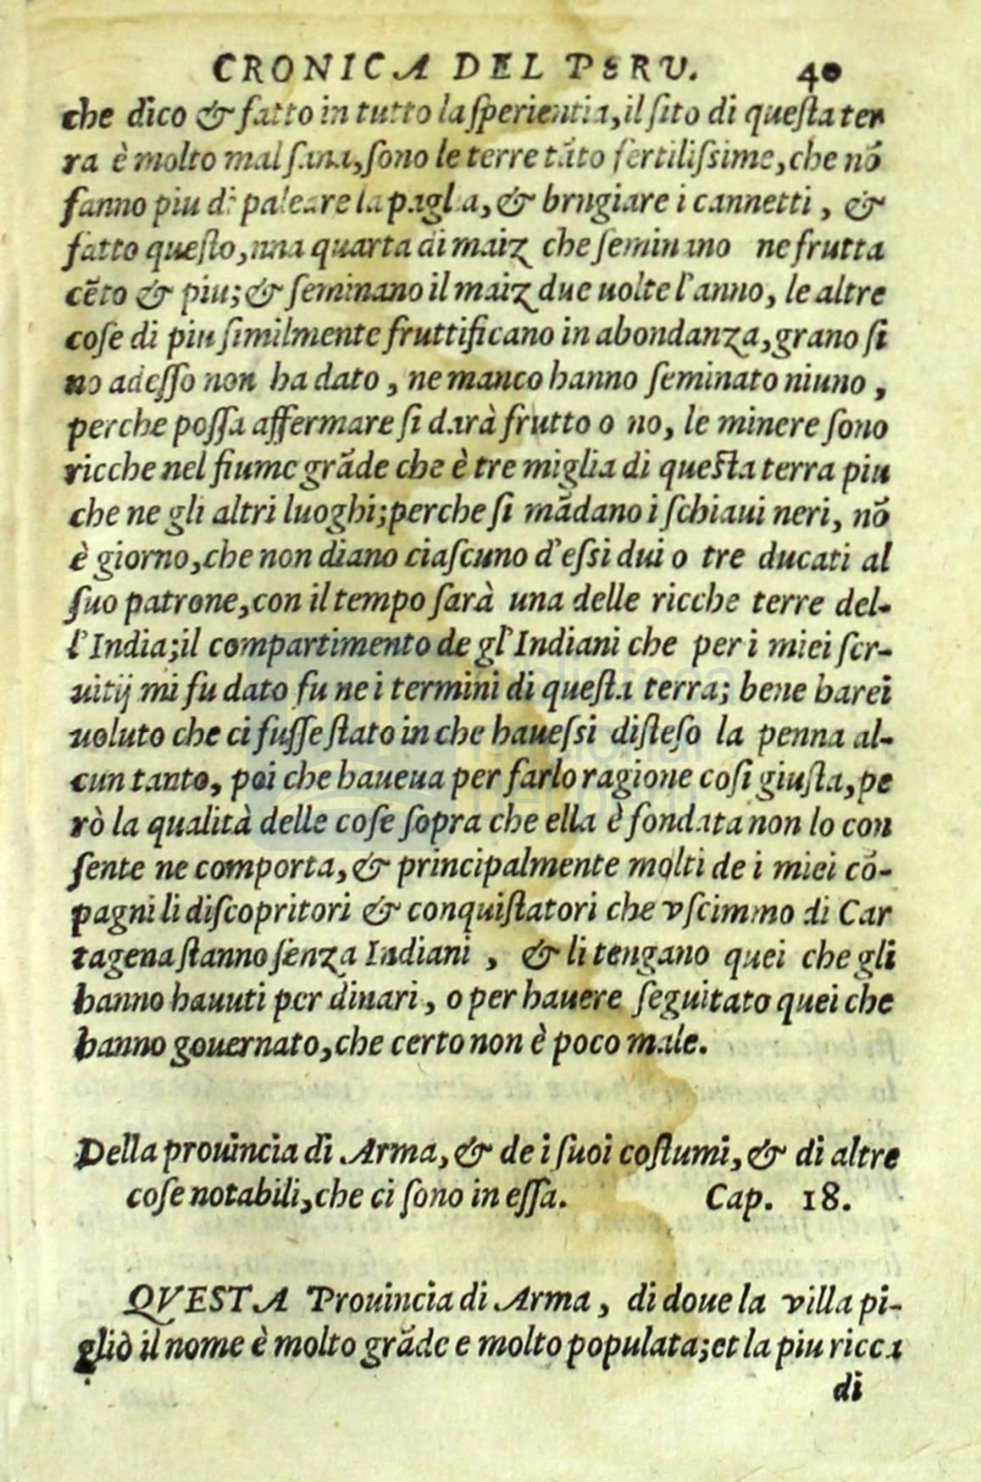 CRONICA DEL PERU. 40
che dico & fatto in tutto la sperientia, il sito di questa ter
ra è molto mal sana, sono le terre tãto fertilissime, che nõ
fanno piu di paleare la pagla, & brugiare i cannetti, &
fatto questo, una quarta di maiz che seminano ne frutta
cẽto & piu; & seminano il maiz due uolte l'anno, le altre
cose di piu similmente fruttificano in abondanza, grano si
no adesso non ha dato, ne manco hanno seminato niuno,
perche possa affermare si darà frutto o no, le minere sono
ricche nel fiume grãde che è tre miglia di questa terra piu
che ne gli altri luoghi; perche si mãdano i schiaui neri, nõ
è giorno, che non diano ciascuno d'essi dui o tre ducati al
suo patrone, con il tempo sarà una delle ricche terre del-
l'India; il compartimento de gl'Indiani che per i miei ser-
uitij mi fu dato fu ne i termini di questa terra; bene harei
uoluto che ci fusse stato in che hauessi disteso la penna al-
cun tanto, poi che haueua per farlo ragione cosi giusta, pe
rò la qualità delle cose sopra che ella è fondata non lo con
sente ne comporta, & principalmente molti de i miei cõ-
pagni li discopritori & conquistatori che vscimmo di Car
tagena stanno senza Indiani, & li tengano quei che gli
hanno hauuti per dinari, o per hauere seguitato quei che
hanno gouernato, che certo non è poco male.
Della prouincia di Arma, & de i suoi costumi, & di altre
cose notabili, che ci sono in essa. Cap. 18.
QVESTA Prouincia di Arma, di doue la villa pi-
gliò il nome è molto grãde e molto populata; et la piu ricca
di